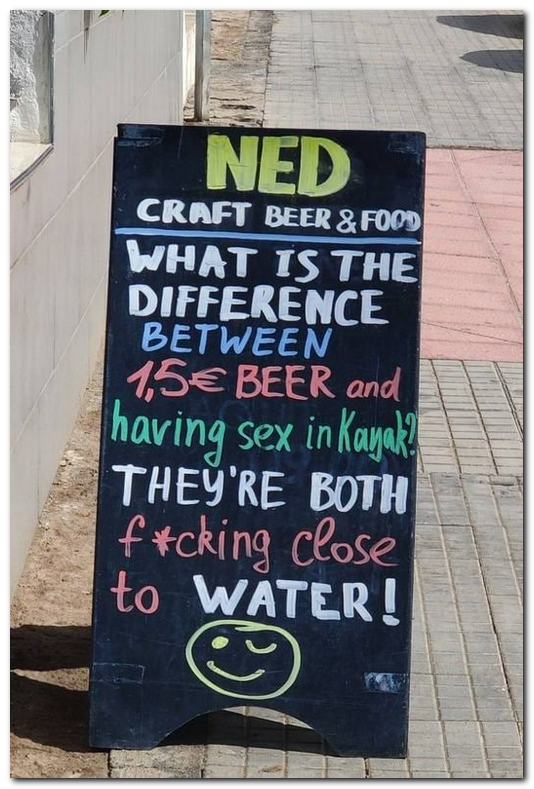 NED
CRAFT BEER & FOOD
WHAT IS THE
DIFFERENCE
BETWEEN
1,5€ BEER and
having sex in Kayak?
THEY'RE BOTH
f*cking close
to WATER!